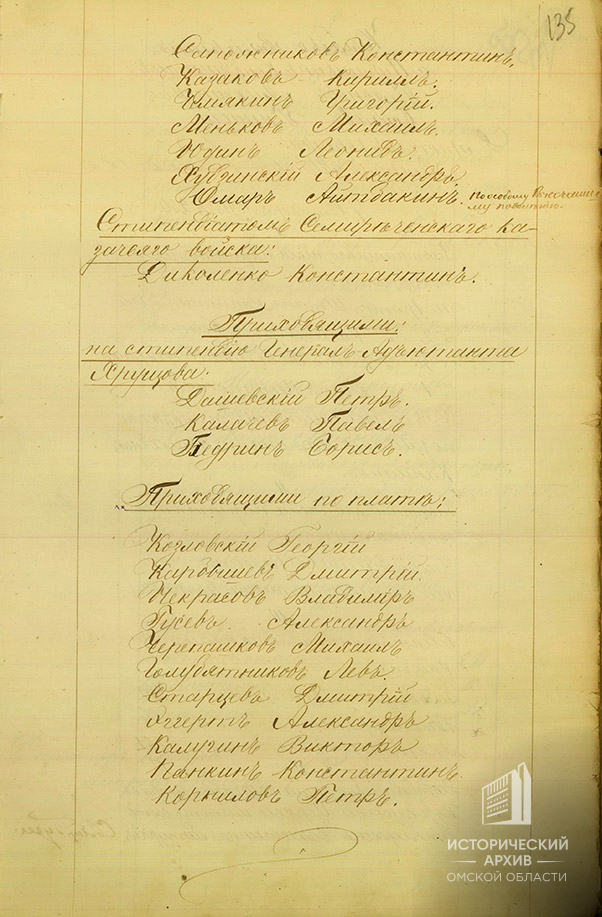 135
Сапожниковъ Константинъ.
Казаковъ Кириллъ.
Чмякинъ Григорій.
Меньковъ Михаилъ.
Юдинъ Леонидъ.
Александръ
Омаръ Айтбакинъ. По особому
му повелѣнію.
Стипендіатомъ Семирѣченскаго ка-
зачьяго войска:
Диколенко Константинъ.
Приходящими:
на стипендію Генералъ-Адъютанта
Хрущова:
Дашевскій Петръ.
Калачевъ Павелъ
Педринъ Борисъ.
Приходящими по платѣ:
Козловскій Георгій
Карбышевъ Дмитрій.
Некрасовъ Владиміръ
Гусевъ. Александръ
Черепашковъ Михаилъ
Голубятниковъ Левъ.
Старцевъ Дмитрій
Эггертъ Александръ
Калугинъ Викторъ
Панкинъ Константинъ.
Корниловъ Петръ.
ИСТОРИЧЕСКИЙ
АРХИВ
ОМСКОЙ ОБЛАСТИ